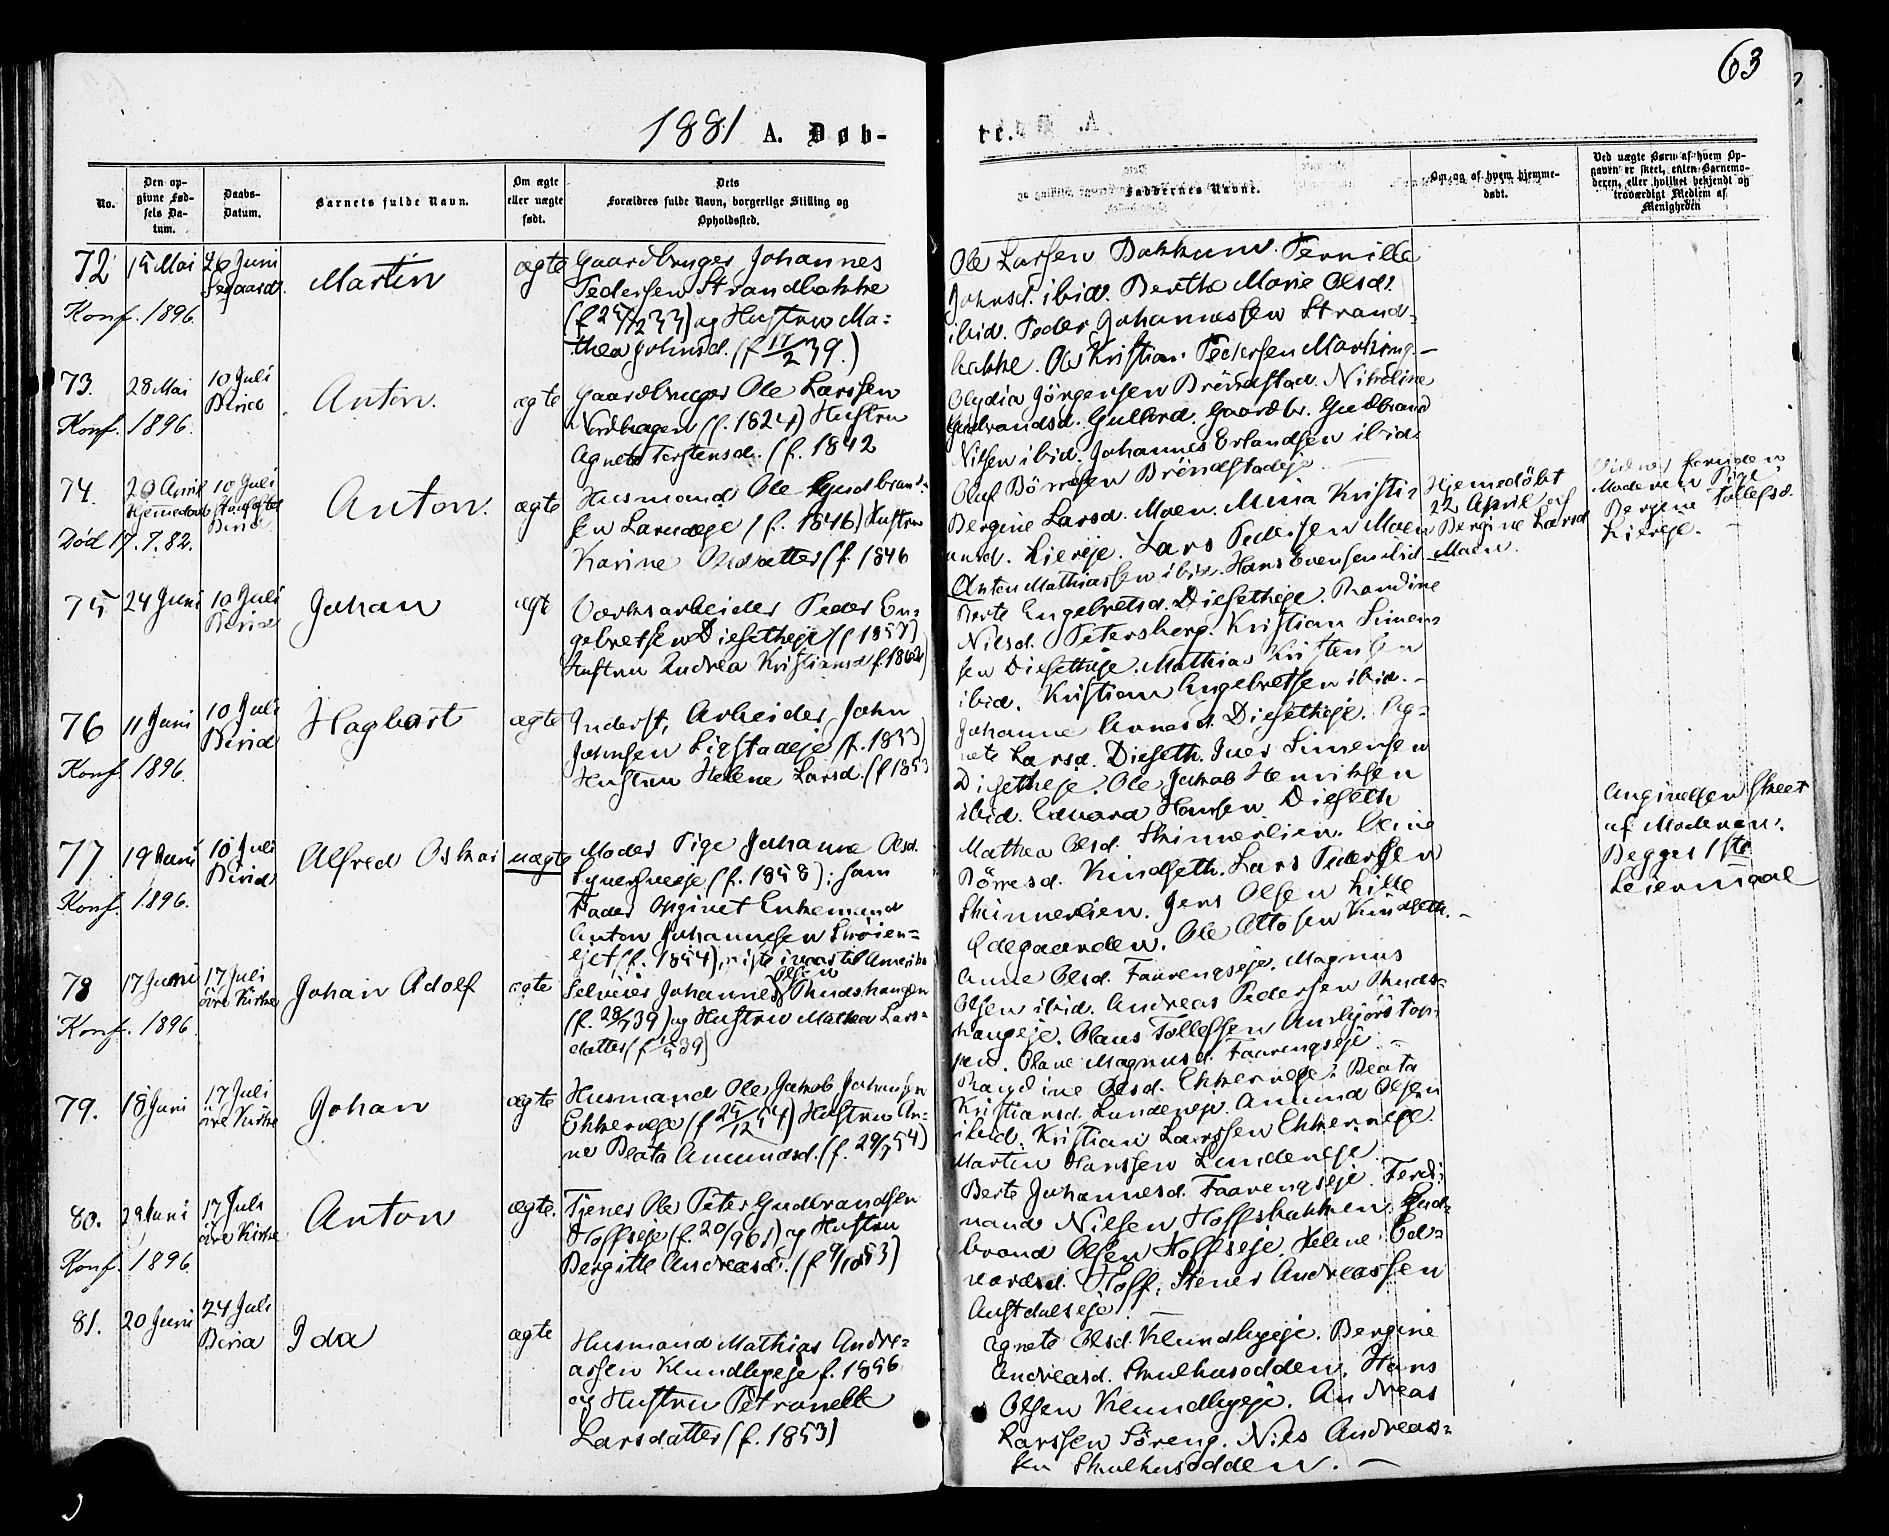 63
1881 A. Døb-
te.
No.
Den op-
givne Fød-
sels Da-
tum.
Daabs-
Datum.
Barnets fulde Navn.
Om ægte
eller uægte
født.
Dets
Forældres fulde Navn, borgerlige Stilling og
Opholdssted.
Faddernes Navne.
Om og af hvem hjemme-
døbt.
Ved uægte Børn af hvem Op-
gaven er skeet, enten Barnemo-
deren, eller hvilket bekjendt og
troværdigt Medlem af
Menigheden
72
15 Mai
26 Juni
Martin
ægte
Gaardbruger Johannes
Pedersen Strandbakke
og Hustru Ma=
thea Johnsd. (f. 17/2 39.)
Konf. 1896.
Ole Larsen Bakkum. Pernille
Johnsd. ibid. Berthe Marie Olsdr.
ibid. Peder Johannessen Strand=
bakke. Ole Kristian Pedersen
73.
28 Mai
10 Juli
Birid
Anton.
ægte
Gaardbruger Ole Larssen
(f. 1824) Hustru
Agnete Torstensd. (f. 1842
Konf. 1896.
Jörgensen Bröndstad. Nikoline
Gudbrandsd. Gaardbr. Gudbrand
Nilsen ibid. Johannes Erlandsen ibid.
Oluf Börresen
74.
20 April
Hjemedøb
10 Juli
Birid
Anton.
ægte
Husmand Ole Gudbrand=
sen (f. 1846) Hustru
Karine Olsdatter (f. 1846
Død 17.7.82.
Bergine Larsd. Moen. Mina Kristi=
ansd. Liereje. Lars Pedersen Moen
Anton Mathiassen ibid. Hans Evensen ibid
Hjemedöbt
22 April af
Bergine Larsd
Moen.
Moderen Pige
Bergine Tollefsd.
Liereje.
75
24 Juni
10 Juli
Birid
Johan
ægte
Værksarbeider Peder En=
gebretsen Diesetheje (f 1857)
Hustru Andrea Kristiansd
Berte Engebretsd. Diesetheje. Randine
Nilsd. Petersberg. Kristian Simen=
sen Diesetheje. Mathias Kristensen
ibid. Kristian Engebretsen ibid. -
76
11 Juni
10 Juli
Birid
Hagbart
ægte
Inderst, Arbeider John
Johnsen (f. 1853)
Hustru Helene Larsd. (f 1853
Konf. 1896.
Johanne Arnesd. Diesetheje. Ag=
nete Larsd. Dieseth. Iver Simensen
Diesetheje. Ole Jakob Henriksen
ibid. Edvard Hansen Dieseth
77
19 Juni
10 Juli
Birid
Alfred Oskar
uægte
Moder Pige Johanne Olsd.
(f. 1858): som
Fader Opgivet Enkemand
Anton Johannesen
(f. 1854), reiste ivaar til Amerika
Konf. 1896.
Mathea Olsd. Skinnerlien. Oline
Börresd. Kindseth. Lars Pedersen
Skinnerlien. Jens Olsen Lille
Ödegaarden. Ole Ottosen Kindseth. -
Angivelsen skeet
af Moderen.
Begges 1ste
Leiermaal
78
17 Juni
17 Juli
øvre Kirke
Johan Adolf
ægte
Selveier Johannes Olsen Skudshaugen
og Hustru Mathea Lars=
datter
Konf. 1896.
Anne Olsd. Faarengseje. Magnus
Olsen ibid. Andreas Pedersen Skuds=
haugeje. Olaus Tollefsen
Olave Magnusd. Faarengseje -
79.
18 Juni
17 Juli
øvre Kirke
Johan
ægte
Husmand Ole Jakob Johansen
Ekkerneje (f 25/12 54) Hustru An=
ne Beata Amundsd.
Randine Olsd. Ekkerneje. Beata
Kristiansd. Lundeneje. Amund Olsen
ibid. Kristian Larssen Ekkerneje.
Martin Hanssen Lundeneje
80.
17 Juli
øvre Kirke
Anton
ægte.
Tjener Ole Peter Gudbrandsen
Hoffseje og Hustru
Bergitte Andreasd.
Konf. 1896
Berte Johannesd. Faarengseje. Ferdi=
nand Nilsen Hoffsbakken. Gud=
brand Olsen Hoffseje. Helene Ed=
vardsd. Hoff. Stener Andreassen
Austdalseje
81.
20 Juni
24 Juli
Birid
Ida
ægte
Husmand Mathias Andre=
assen Klundbyeje f. 1856
og Hustru Petronelle
Larsdatter (f. 1853)
Agnete Olsd. Klundbyeje. Bergine
Andreasd. Skulhusodden. Hans
Olsen Klundbyeje. Andreas
Larssen Söreng. Nils Andreas=
sen Skulhusodden. -